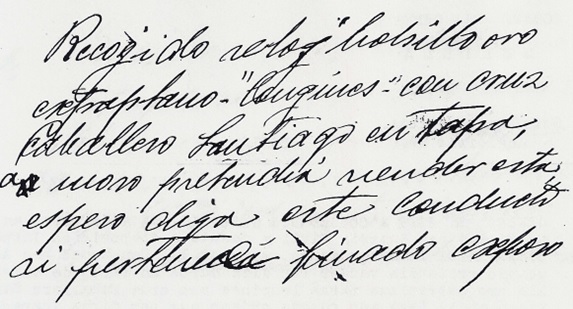 Recogido reloj bolsillo oro
extraplano - "Longines" - con cruz
Caballero Santiago en tapa,
a moro pretendía vender esta
espero diga este conducto
si pertenecía finado esposo